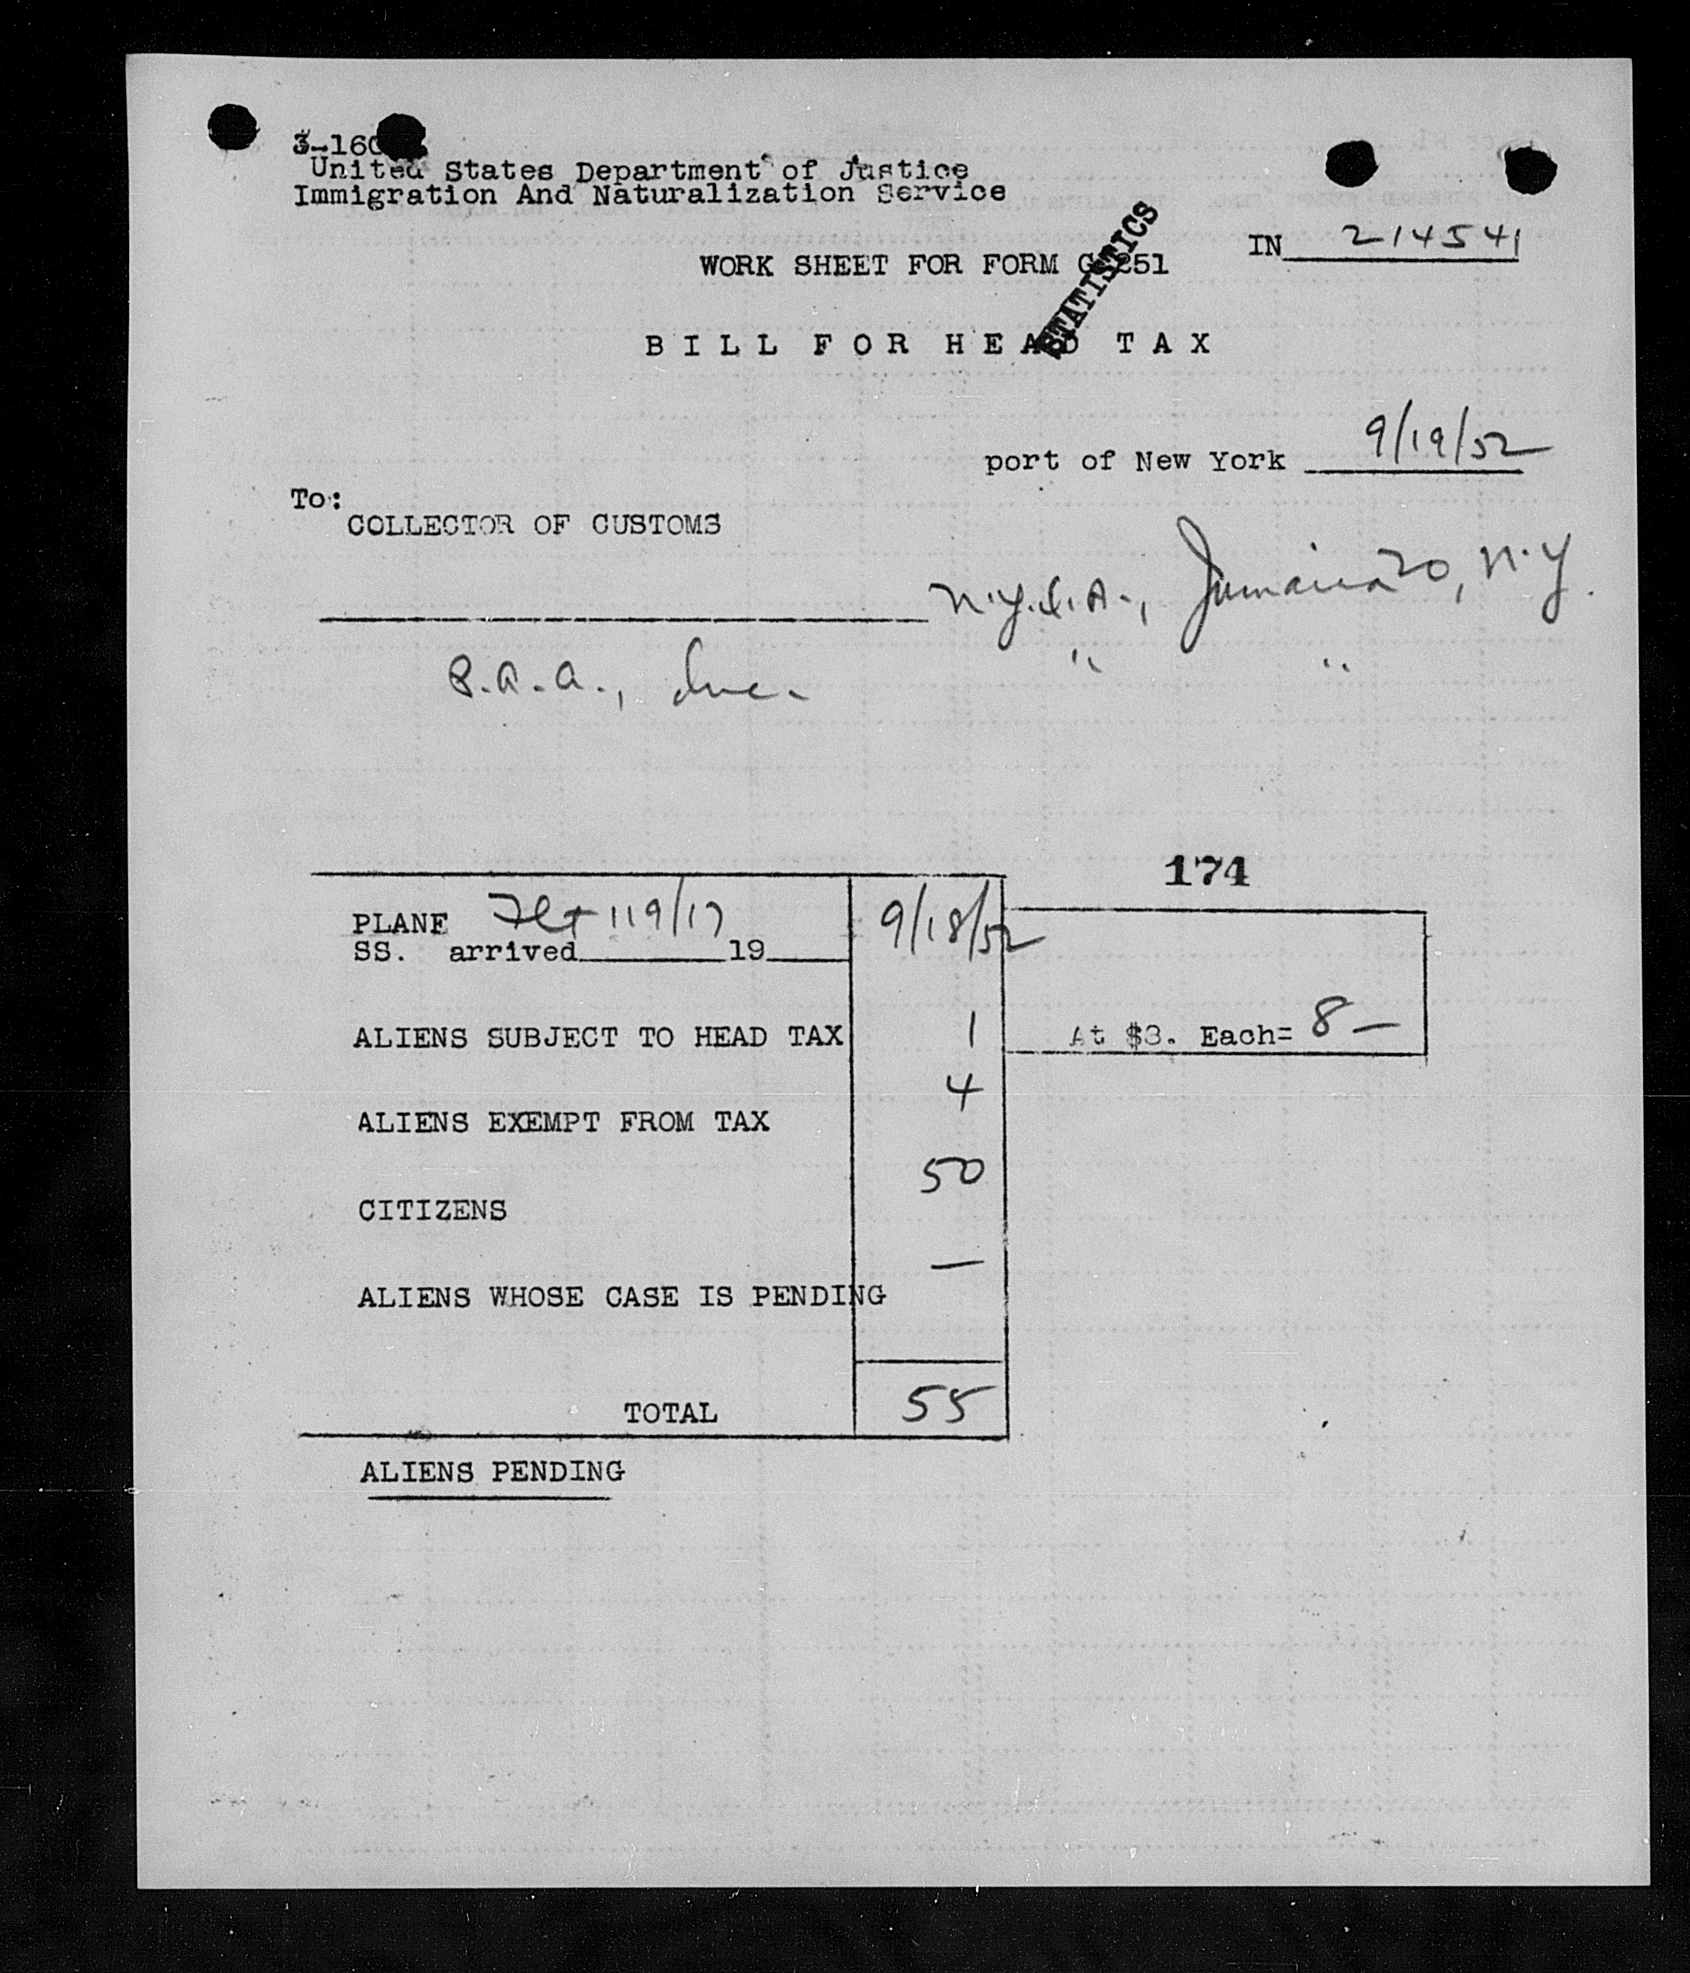 3-160
United States Department of Justice
Immigration And Naturalization Service
STATISTICS
IN 214541
WORK SHEET FOR FORM G-251
BILL FOR HEAD TAX
port of New York 9/19/52
To:
COLLECTOR OF CUSTOMS
N.Y.I.A., Jamaica 20, N.Y.
P.A.A., Inc. " "
174
PLANE Flt 119/17 9/18/52
SS. arrived 19
ALIENS SUBJECT TO HEAD TAX 1 At $8. Each= 8 —
ALIENS EXEMPT FROM TAX 4
CITIZENS 50
ALIENS WHOSE CASE IS PENDING —
TOTAL 55
ALIENS PENDING